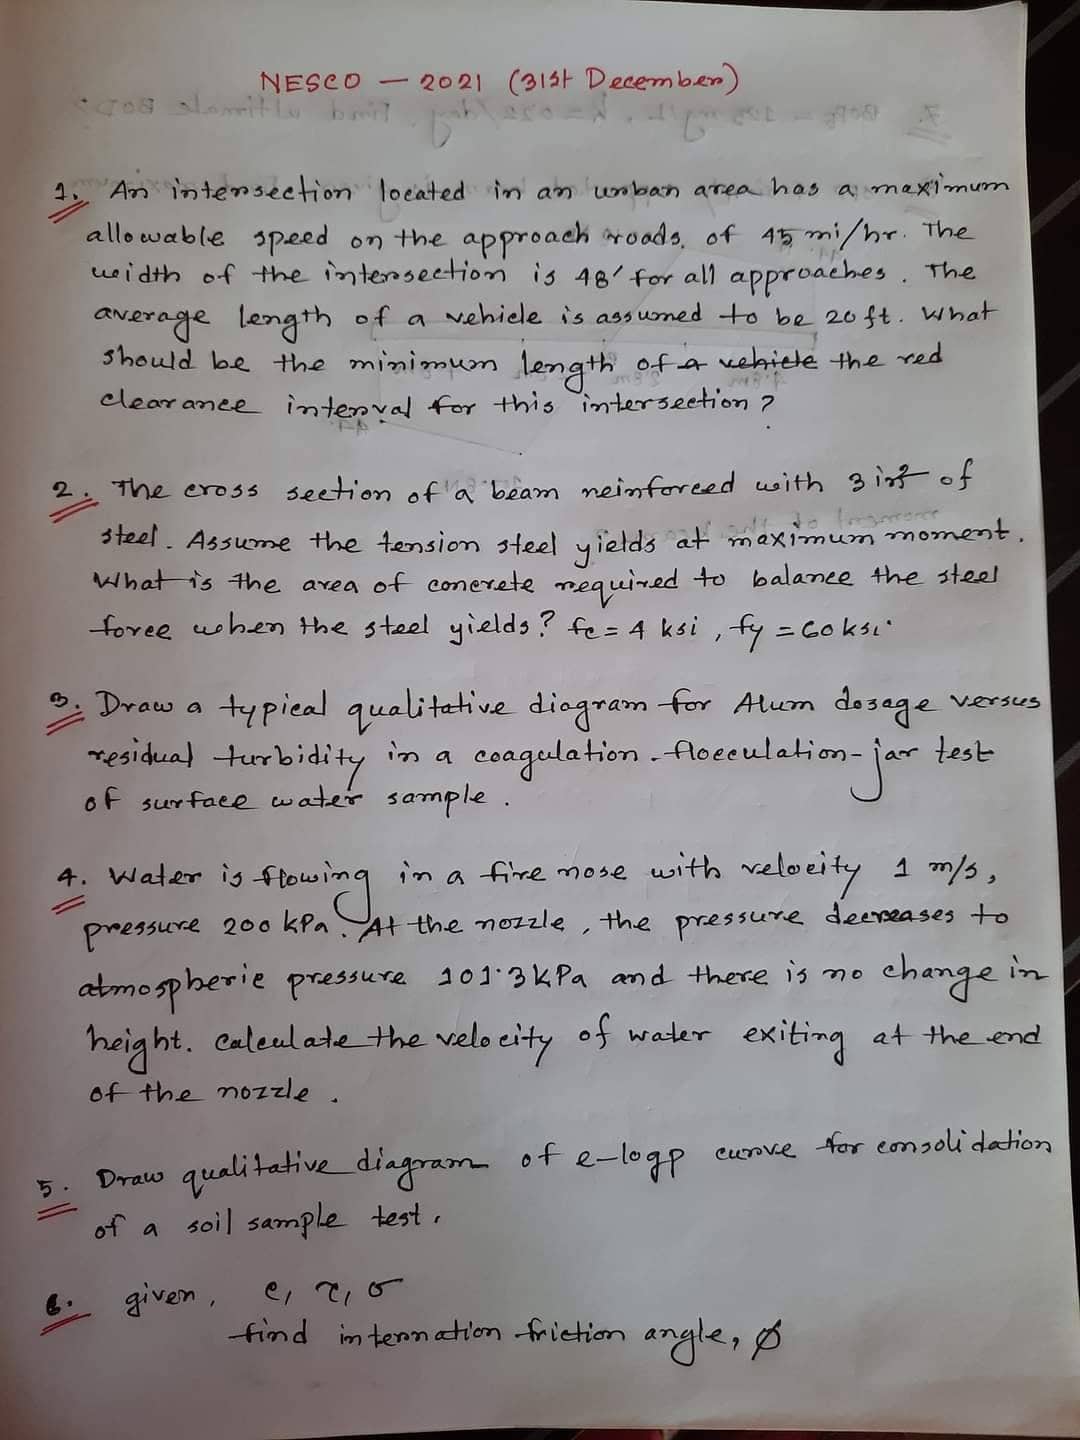 NESCO — 2021 (31st December)
1. An intersection located in an urban area has a maximum
allowable speed on the approach roads, of 45 mi/hr. The
width of the intersection is 48' for all approaches. The
average length of a vehicle is assumed to be 20 ft. What
should be the minimum length of a vehicle the red
clearance interval for this intersection?
2. The cross section of a beam reinforced with 3 in² of
steel. Assume the tension steel yields at maximum moment.
What is the area of concrete required to balance the steel
force when the steel yields? fc = 4 ksi, fy = 60 ksi
3. Draw a typical qualitative diagram for Alum dosage versus
residual turbidity in a coagulation-floeculation-jar test
of surface water sample.
4. Water is flowing in a fire nose with velocity 1 m/s,
pressure 200 kPa. At the nozzle, the pressure decreases to
atmospheric pressure 101.3 kPa and there is no change in
height. Calculate the velocity of water exiting at the end
of the nozzle.
5. Draw qualitative diagram of e-logp curve for consolidation
of a soil sample test.
6. given, c, τ, σ
find internation friction angle, φ